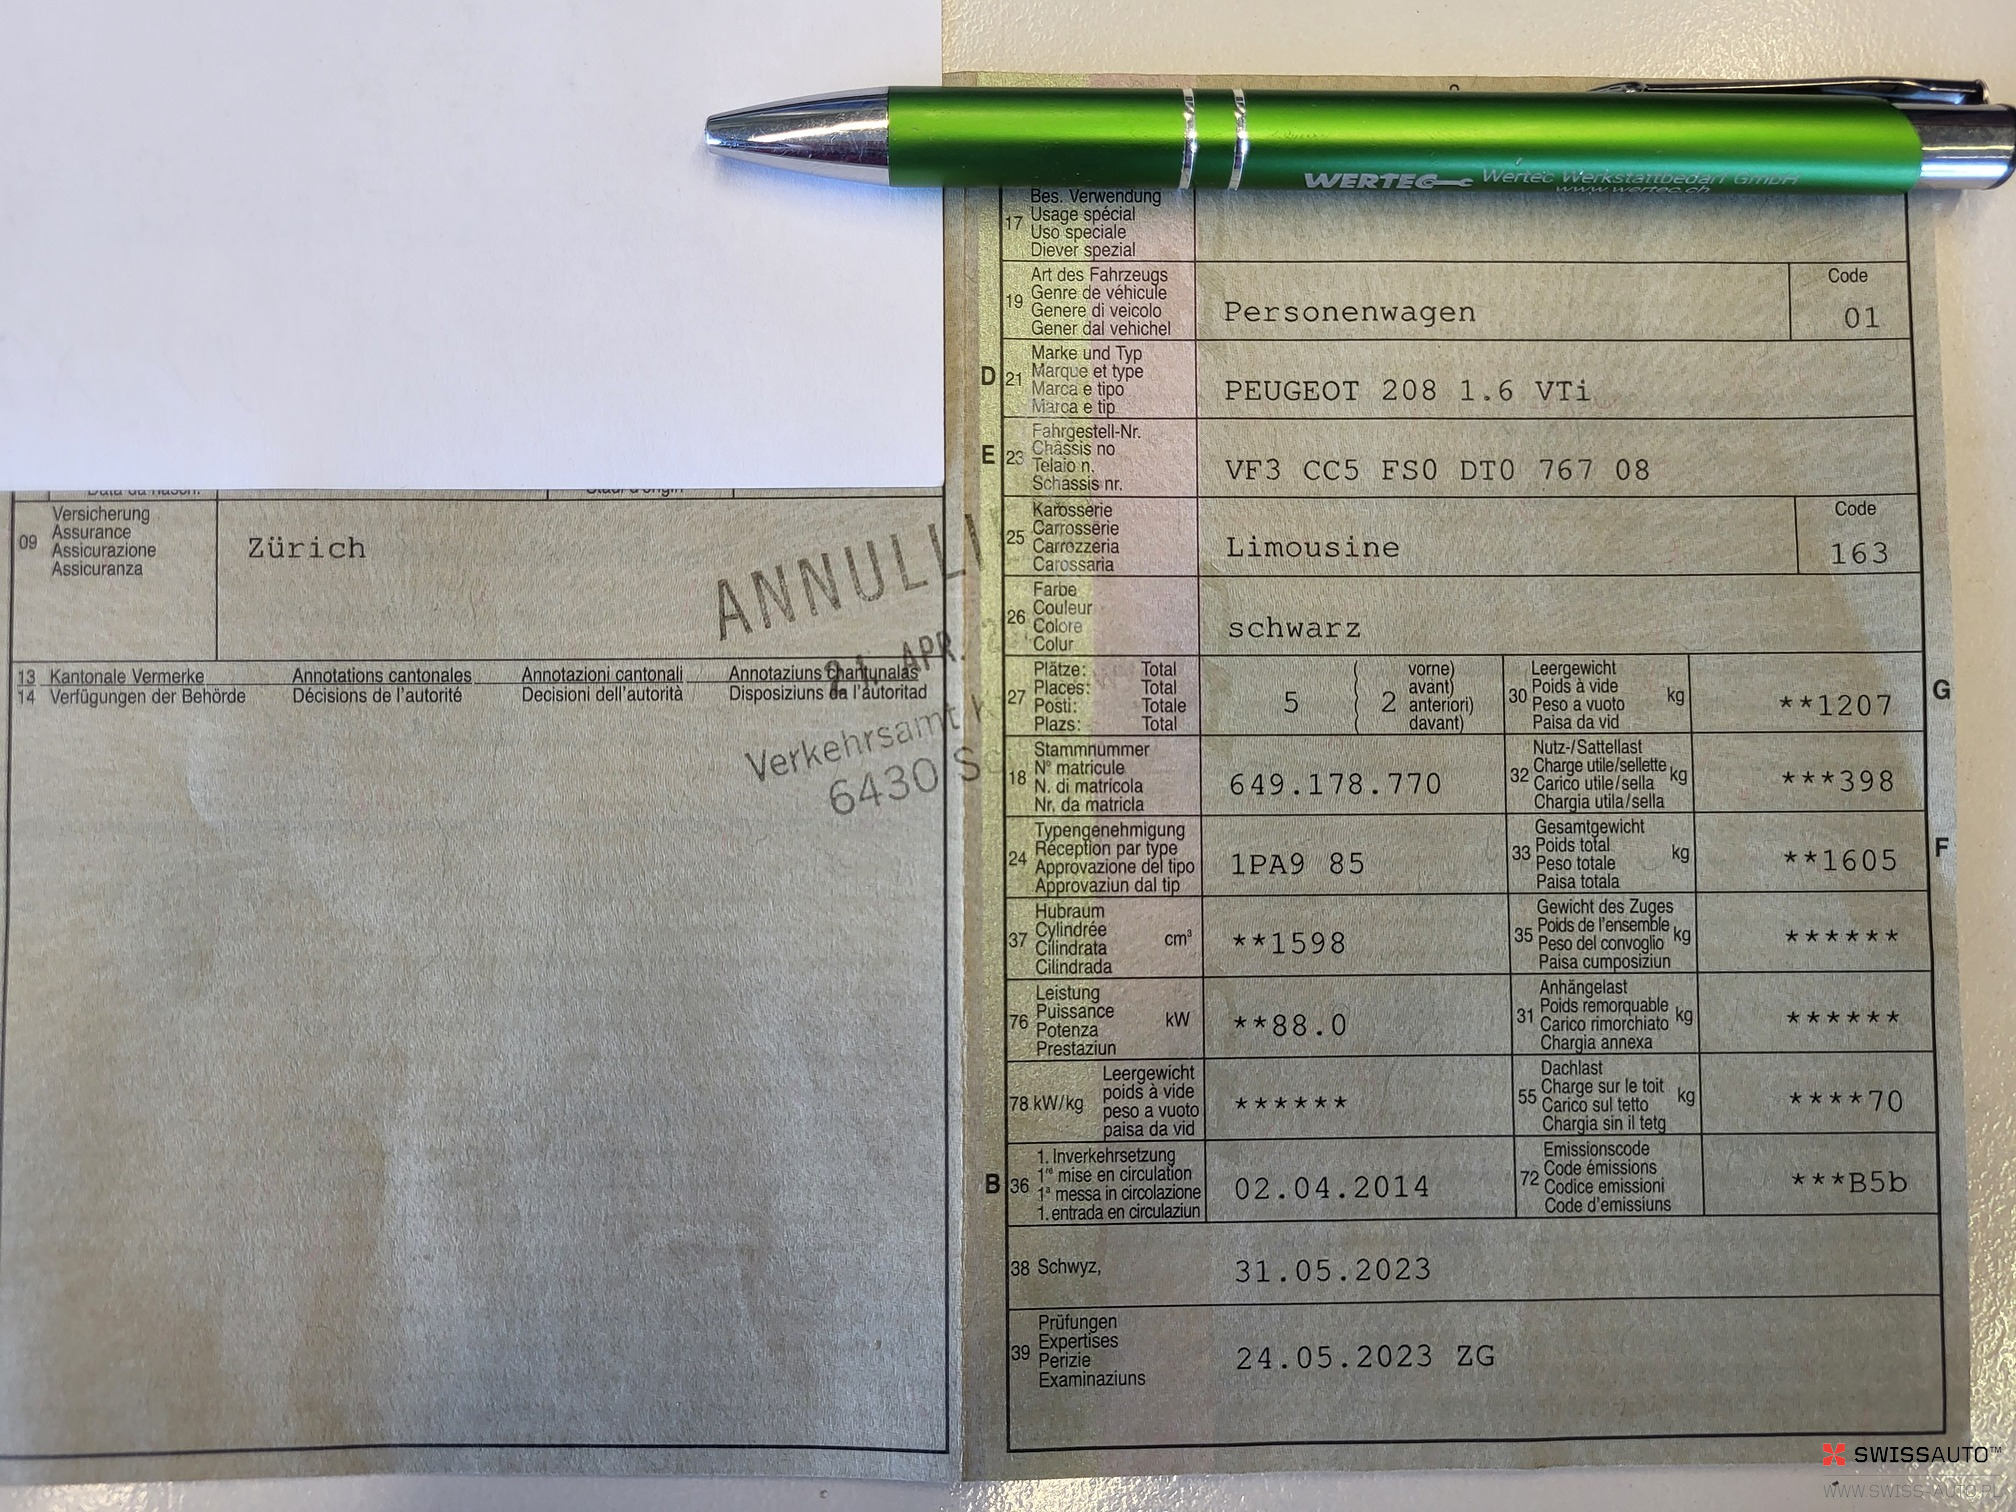 WERTEC Wertec Werkstattbedarf GmbH
www.wertec.ch
09 Versicherung
Assurance
Assicurazione
Assicuranza
Zürich
ANNULLI
APR.
Verkehrsamt
6430 S
13 Kantonale Vermerke Annotations cantonales Annotazioni cantonali Annotaziuns chantunalas
14 Verfügungen der Behörde Décisions de l'autorité Decisioni dell'autorità Disposiziuns da l'autoritad
17 Bes. Verwendung
Usage spécial
Uso speciale
Diever spezial
19 Art des Fahrzeugs
Genre de véhicule
Genere di veicolo
Gener dal vehichel
Personenwagen
Code
01
D 21 Marke und Typ
Marque et type
Marca e tipo
Marca e tip
PEUGEOT 208 1.6 VTi
E 23 Fahrgestell-Nr.
Châssis no
Telaio n.
Schassis nr.
VF3 CC5 FS0 DT0 767 08
25 Karosserie
Carrosserie
Carrozzeria
Carossaria
Limousine
Code
163
26 Farbe
Couleur
Colore
Colur
schwarz
27 Plätze: Total
Places: Total
Posti: Totale
Plazs: Total
5 ( 2 vorne)
avant)
anteriori)
davant)
30 Leergewicht
Poids à vide
Peso a vuoto
Paisa da vid
kg
**1207
G
18 Stammnummer
N° matricule
N. di matricola
Nr. da matricla
649.178.770
32 Nutz-/Sattellast
Charge utile/sellette
Carico utile/sella
Chargia utila/sella
kg
***398
24 Typengenehmigung
Réception par type
Approvazione del tipo
Approvaziun dal tip
1PA9 85
33 Gesamtgewicht
Poids total
Peso totale
Paisa totala
kg
**1605
F
37 Hubraum
Cylindrée
Cilindrata
Cilindrada
cm³
**1598
35 Gewicht des Zuges
Poids de l'ensemble
Peso del convoglio
Paisa cumposiziun
kg
******
76 Leistung
Puissance
Potenza
Prestaziun
kW
**88.0
31 Anhängelast
Poids remorquable
Carico rimorchiato
Chargia annexa
kg
******
78 kW/kg
Leergewicht
poids à vide
peso a vuoto
paisa da vid
******
55 Dachlast
Charge sur le toit
Carico sul tetto
Chargia sin il tetg
kg
****70
B 36 1. Inverkehrsetzung
1re mise en circulation
1a messa in circolazione
1. entrada en circulaziun
02.04.2014
72 Emissionscode
Code émissions
Codice emissioni
Code d'emissiuns
***B5b
38 Schwyz,
31.05.2023
39 Prüfungen
Expertises
Perizie
Examinaziuns
24.05.2023 ZG
SWISSAUTO™
WWW.SWISS-AUTO.PL